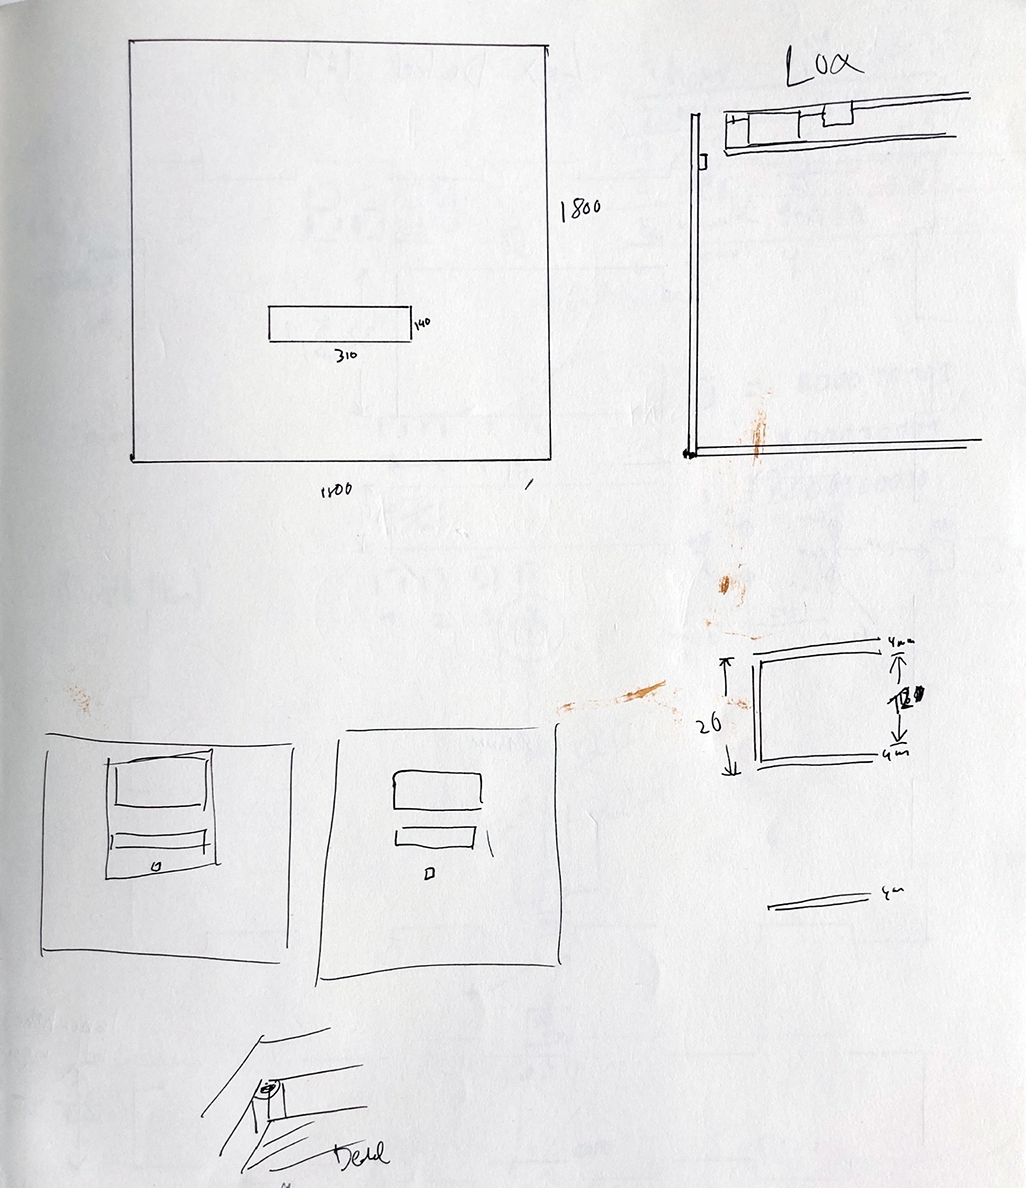 Loa
1800
140
310
1800
4mm
26
4mm
4m